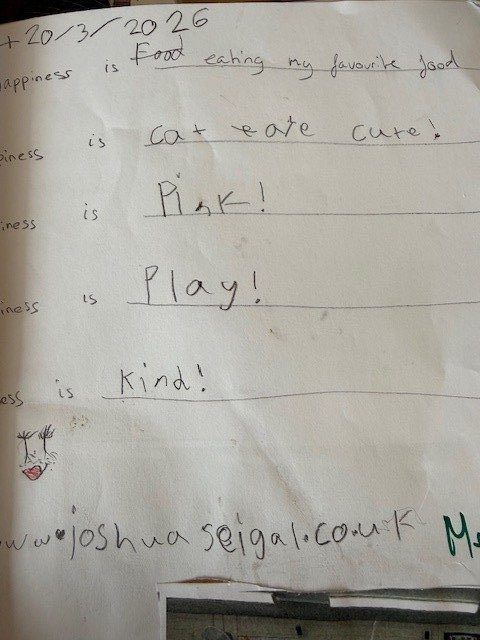 20/3/2026
appiness is Food eating my favourite food
piness is cat eate cute!
iness is Pink!
iness is Play!
ess is kind!
ww.joshuaseigal.co.uk M